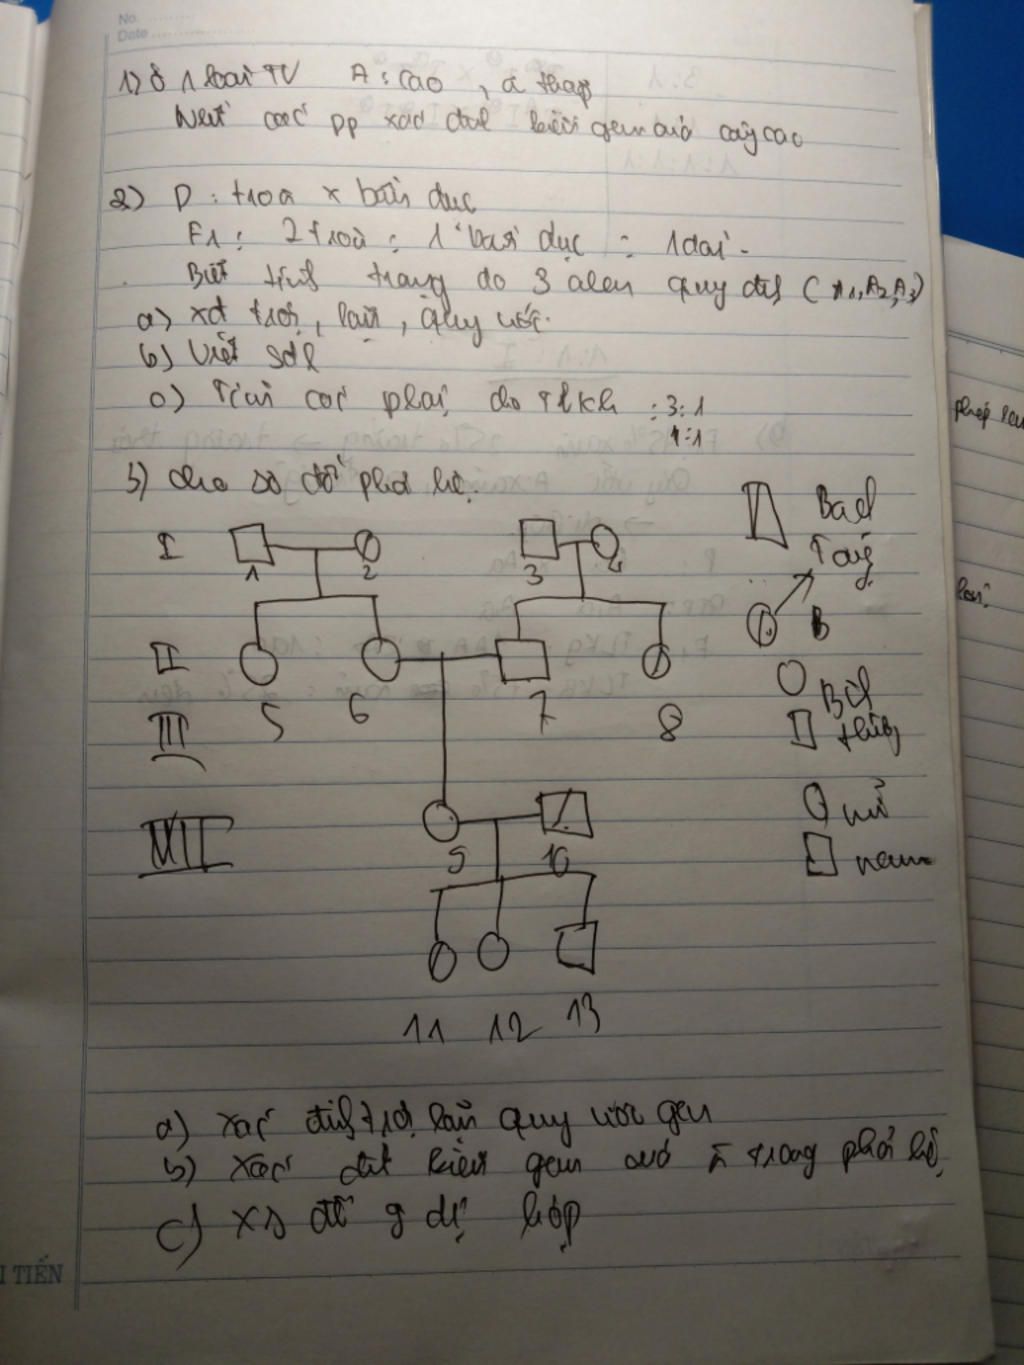 No.
Date
1) Ở 1 loài TV A: cao, a thấp
Nêu các pp xác định kiểu gen của cây cao
2) P: tròn x bầu dục
F1: 2 tròn : 1 bầu dục : 1 dài.
Biết tính trạng do 3 alen quy định (A1, A2, A3)
a) xđ trội, lặn, quy ước.
b) Viết sđl
c) Tìm các phép cho TLKH : 3:1
1:1
3) cho sơ đồ phả hệ.
I
1
2
3
4
Bạch
Tạng
II
5
6
7
8
Bình
thường
III
9
10
nữ
nam
11 12 13
a) xác định trội lặn quy ước gen
b) xác định kiểu gen của trong phả hệ
c) xs để 9 dị hợp
TIẾN
phép lai